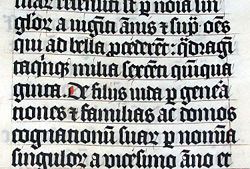 suaꝝ recensiti sūt ꝑ noīa sin
guloꝝ a uigīti ānis ⁊ sup̄ oēs
qui ad bella ꝓcederēt: qͣdragī
taqīqꝫ milia sexcēti quīqua
ginta. De filijs iuda ꝑ genea
tiones ⁊ familias ac domos
cognationū suaꝝ ꝑ nomīa
singuloꝝ a uicesimo āno et